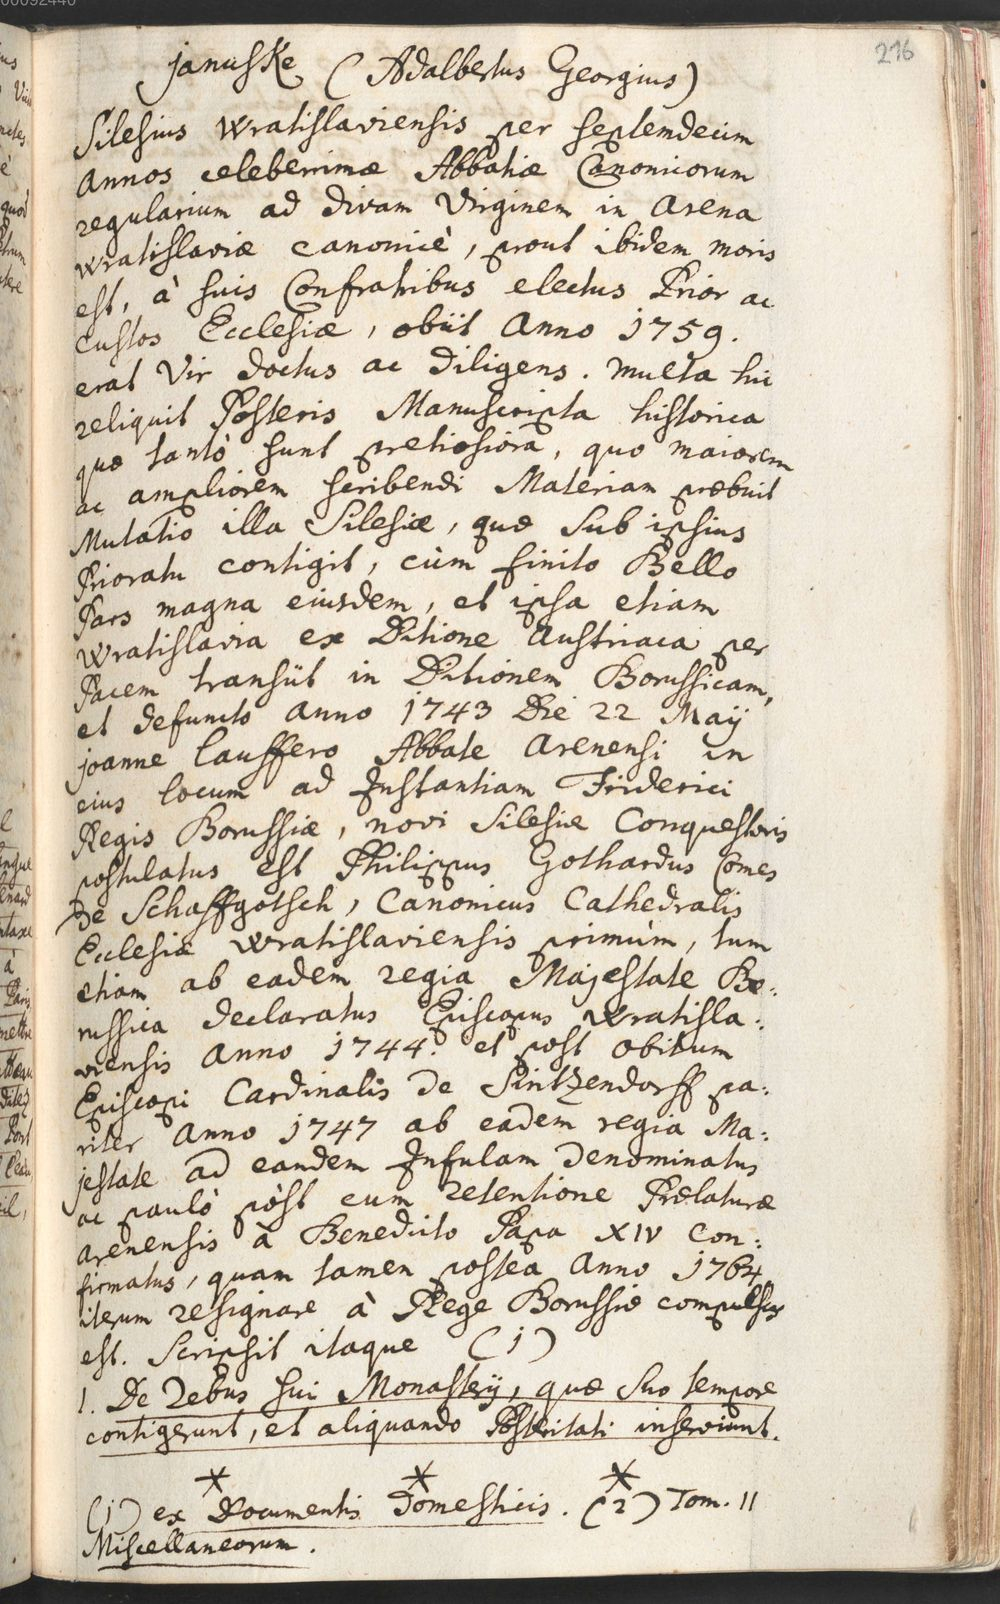 00092440
216
Januske (Adalbertus Georgius)
Silesius Wratislaviensis per septemdecim
Annos celeberrimæ Abbatiæ Canonicorum
regularium ad divam Virginem in Arena
Wratislaviæ canonicè, prout ibidem moris
est, à suis Confratribus electus Prior ac
custos Ecclesiæ, obiit Anno 1759.
erat Vir doctus ac diligens. multa hic
reliquit Posteris Manuscripta historica
quæ tantò sunt pretiosiora, quo maiorem
ac ampliorem scribendi Materiam præbuit
Mutatio illa Silesiæ, quæ sub ipsius
Prioratu contigit, cùm finito Bello
Pars magna eiusdem, et ipsa etiam
Wratislavia ex Ditione Austriaca per
Pacem transiit in Ditionem Borussicam,
et defuncto Anno 1743 Die 22 Maij
Joanne Lauffero Abbate Arenensi in
eius locum ad Instantiam Friderici
Regis Borussiæ, novi Silesiæ Conquestoris
postulatus est Philippus Gothardus Comes
De Schaffgotsch, Canonicus Cathedralis
Ecclesiæ Wratislaviensis primùm, tum
etiam ab eadem regia Majestate Bo:
russica declaratus Episcopus Wratisla:
viensis Anno 1744. et post obitum
Episcopi Cardinalis de Sintzendorff pa:
riter Anno 1747 ab eadem regia Ma:
jestate ad eandem Infulam denominatus
ac paulò pòst cum retentione Prælaturæ
Arenensis à Benedicto Papa XIV con:
firmatus, quam tamen postea Anno 1764
iterum resignare à Rege Borussiæ compulsus
est. Scripsit itaque (1)
1. De rebus sui Monasterij, quæ suo tempore
contigerunt, et aliquando Posteritati inserviunt.
* * *
(1) ex Documentis Domesticis. (2) Tom. II
Miscellaneorum.